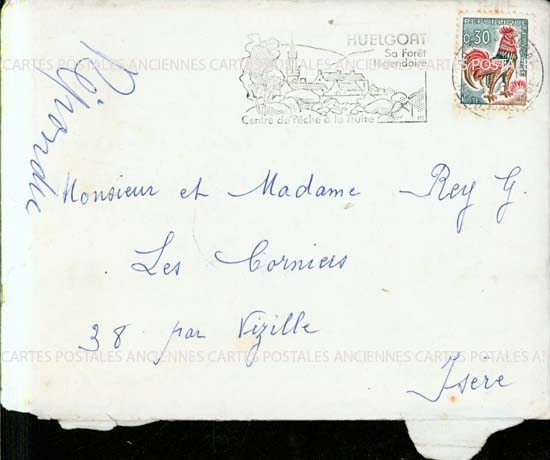 HUELGOAT
Sa Forêt
légendaire
Centre de Pêche à la truite
0,30
Répondre
Monsieur et Madame Rey G.
Les Corniers
38 par Vizille
Isère
CARTES POSTALES ANCIENNES CARTES POSTALES ANCIENNES CARTES POSTALES
CARTES POSTALES ANCIENNES CARTES POSTALES ANCIENNES CARTES POSTALES